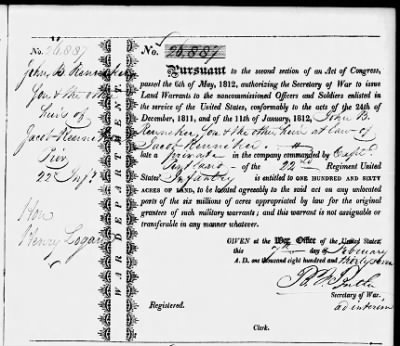 No. 26,887
John B. Renneker
Son & the other
heirs of
Jacob Renneker
Priv.
22 Inf.
Hon
Henry Logan
WAR DEPARTMENT.
No. 26,887
Pursuant to the second section of an Act of Congress,
passed the 6th of May, 1812, authorizing the Secretary of War to issue
Land Warrants to the noncommissioned Officers and Soldiers enlisted in
the service of the United States, conformably to the acts of the 24th of
December, 1811, and of the 11th of January, 1812, John B.
Renneker, Son & the other heirs at law of
Jacob Renneker.
late a private in the company commanded by Capt.
of the 22nd Regiment United
States' Infantry
is entitled to ONE HUNDRED AND SIXTY
ACRES OF LAND, to be located agreeably to the said act on any unlocated
part of the six millions of acres appropriated by law for the original
grantees of such military warrants; and this warrant is not assignable or
transferable in any manner whatever.
GIVEN at the War Office of the United States,
this 7th day of February
A. D. one thousand eight hundred and thirty seven
B. F. Butler
Secretary of War,
ad interim
Registered.
Clerk.